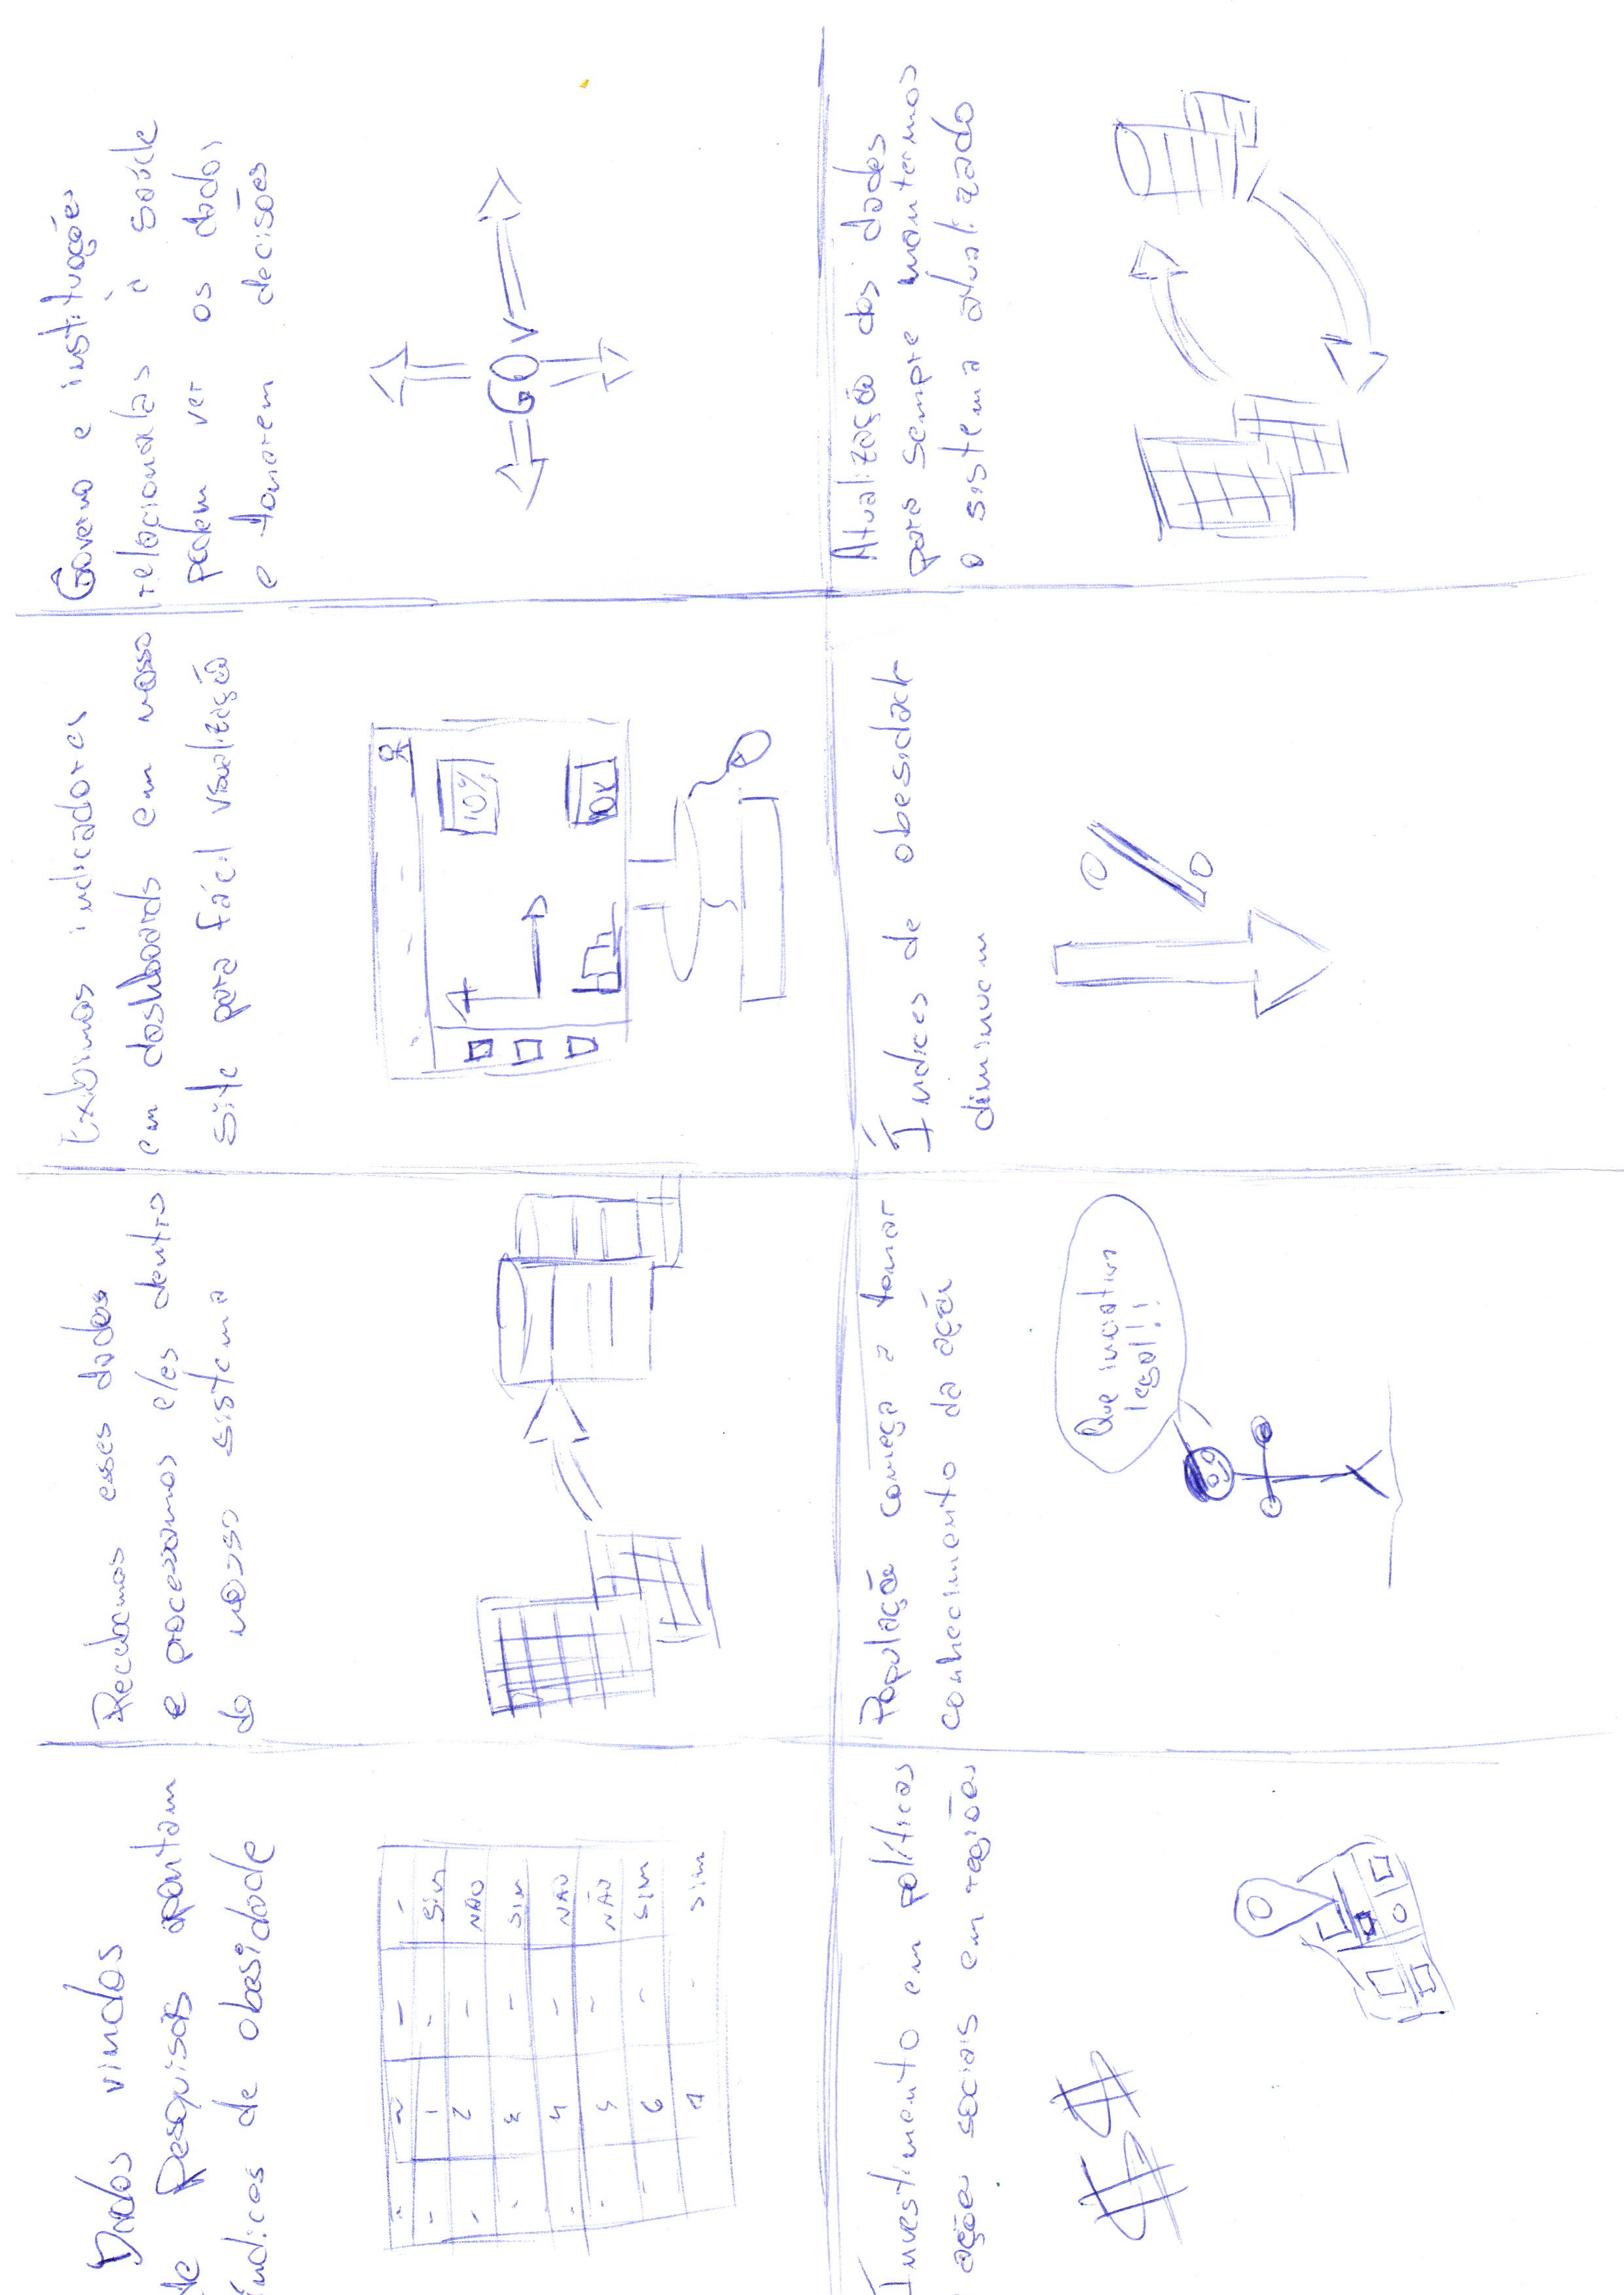 Dados vindos
de Pesquisas apontam
índices de obesidade
1 SIM
2 NÃO
3 SIM
4 NÃO
5 NÃO
6 SIM
7 SIM
Recebemos esses dados
e processamos eles dentro
do nosso sistema
Exibimos indicadores
em dashboards em nosso
site para fácil visualização
10%
10K
Governo e instituições
relacionadas à saúde
podem ver os dados
e tomarem decisões
GOV
Investimento em políticas
ações sociais em regiões
$ $
População começa a tomar
conhecimento da ação
Que iniciativa
legal!!
Índices de obesidade
diminuem
%
Atualização dos dados
para sempre mantermos
o sistema atualizado